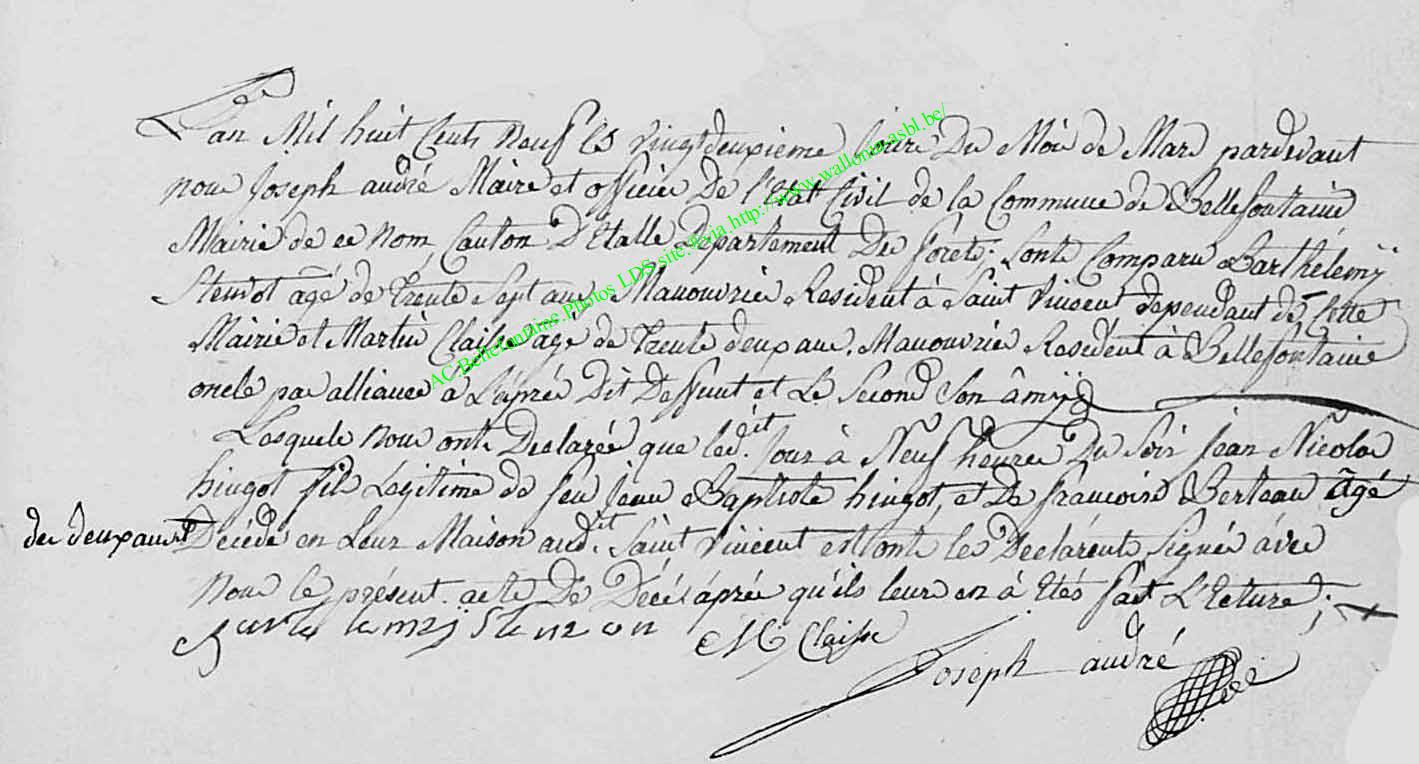 L'an Mil huit Cents neuf les vingt deuxieme Jour Du Mois de Mars pardevant
nous Joseph andré Maire et officier De l'Etat Civil de la Commune de Bellefontaine
Mairie de ce nom, Canton D'Etalle Departement Des forets; Sonts Comparu Barthélemij
agé de Trente Sept ans Manouvrier Resident à Saint Vincent dependant de Cette
Mairie et Martin Claisse agé de Trente deux ans, Manouvrier Resident à Bellefontaine
oncle par alliance à L'aprés Dit Deffunt et Le Second Son âmij
Lesquels nous onts Declarée que led.it Jour à Neuf heures Du Soir Jean Nicolas
hingot fils Légitime de feu Jean Baptiste hingot, et De francoise Berteau âgé
de deux ans Décédé en Leur Maison aud.it Saint Vincent et onts les Declarents Signés ávec
Nous le présent acte De Décés áprés qu'ils leurs en à Etés fait L'Ecture;
M Claisse
Joseph andré
AC Bellefontaine Photos LDS site:© via http://www.wallonia-asbl.be/